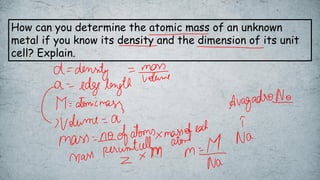 How can you determine the atomic mass of an unknown
metal if you know its density and the dimension of its unit
cell? Explain.
d = density = mass / Volume
a = edge length
M = atomic mass
Volume = a
mass = no of atoms × mass of each atom
per unit cell
mass Z × m m = M / Na
Avagadro No
↑
Na